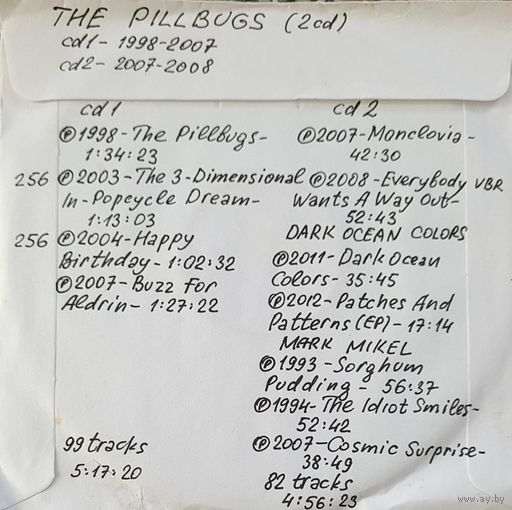 THE PILLBUGS (2cd)
cd1- 1998-2007
cd2- 2007-2008
cd1
℗1998-The Pillbugs-
1:34:23
256 ℗2003-The 3-Dimensional
In-Popcycle Dream-
1:13:03
256 ℗2004-Happy
Birthday- 1:02:32
℗2007-Buzz For
Aldrin- 1:27:22
99 tracks
5:17:20
cd2
℗2007-Monclovia-
42:30
℗2008-Everybody VBR
Wants A Way Out-
52:43
DARK OCEAN COLORS
℗2011-Dark Ocean
Colors- 35:45
℗2012-Patches And
Patterns (EP)- 17:14
MARK MIKEL
℗1993-Sorghum
Pudding- 56:37
℗1994-The Idiot Smiles-
52:42
℗2007-Cosmic Surprise-
38:49
82 tracks
4:56:23
www.ay.by